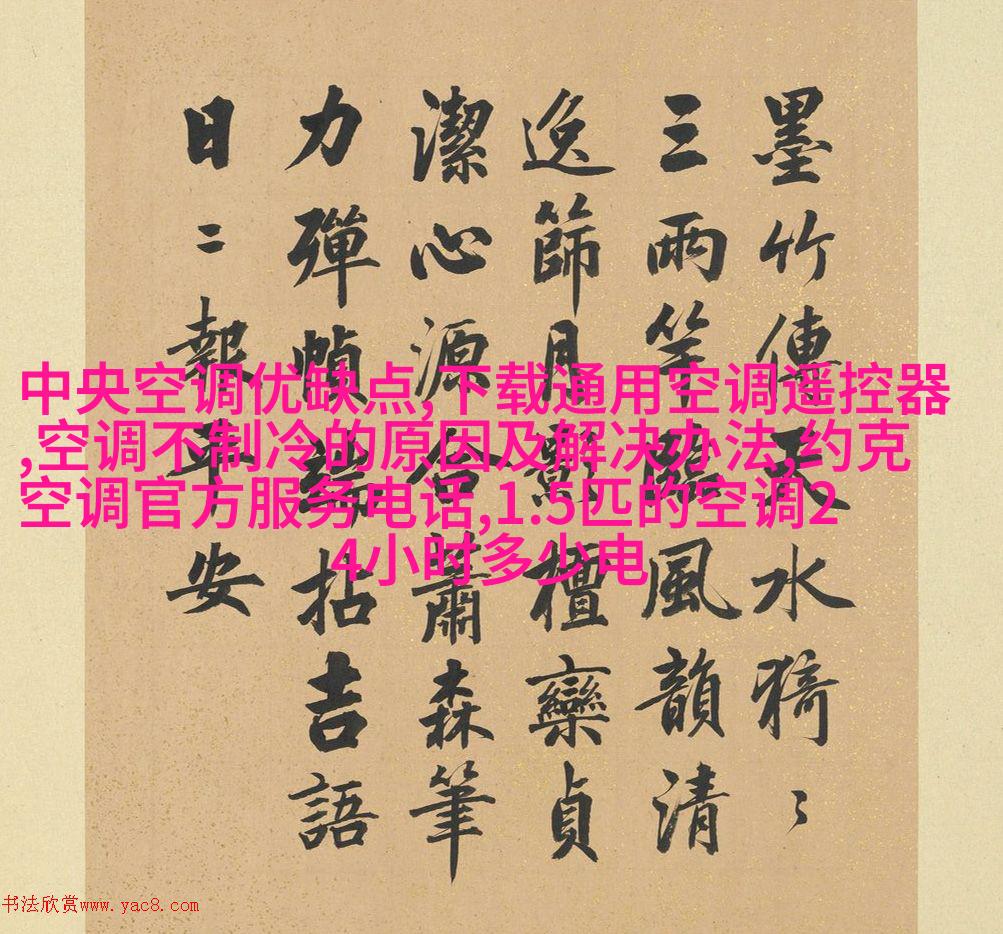 墨竹傳天水猗〻
三兩竿臨風韻清
逸篩月影檀欒貞
潔心源合蕭森筆
力彈幀端拈吉語
日二報平安
中央空调优缺点,下载通用空调遥控器
,空调不制冷的原因及解决办法,约克
空调官方服务电话,1.5匹的空调2
4小时多少电
书法欣赏www.yac8.com